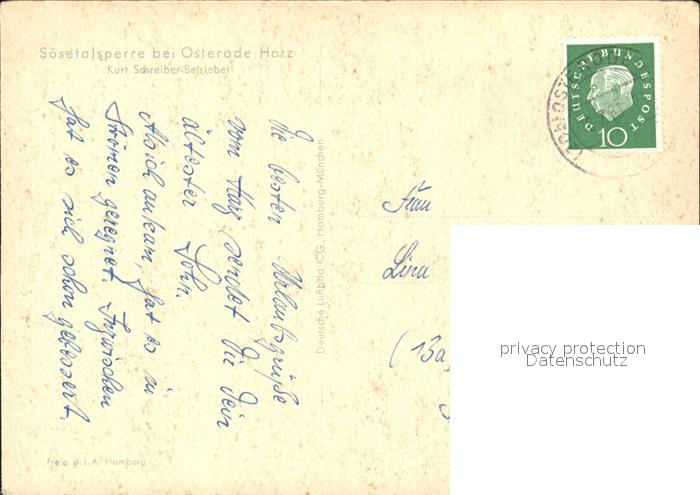 Sösetalsperre bei Osterode Harz
Kurt Schreiber-Betriebe!
DEUTSCHE BUNDESPOST
10
Die besten Urlaubsgrüße
vom Harz sendet Dir Dein
ältester Sohn.
Als ich ankam, hat es in
Strömen geregnet. Inzwischen
hat es sich schon gebessert.
Deutsche Luftbild K.G. Hamburg-München
Frau
Lina
(13a
Freig. d. L.A. Hamburg
privacy protection
Datenschutz